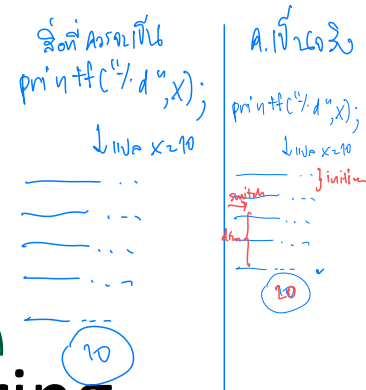 สิ่งที่ควรจะเป็น
printf("%d",x);
↓แปล x=10
10
ค.เป็นจริง
printf("%d",x);
↓แปล x=10
switch
20